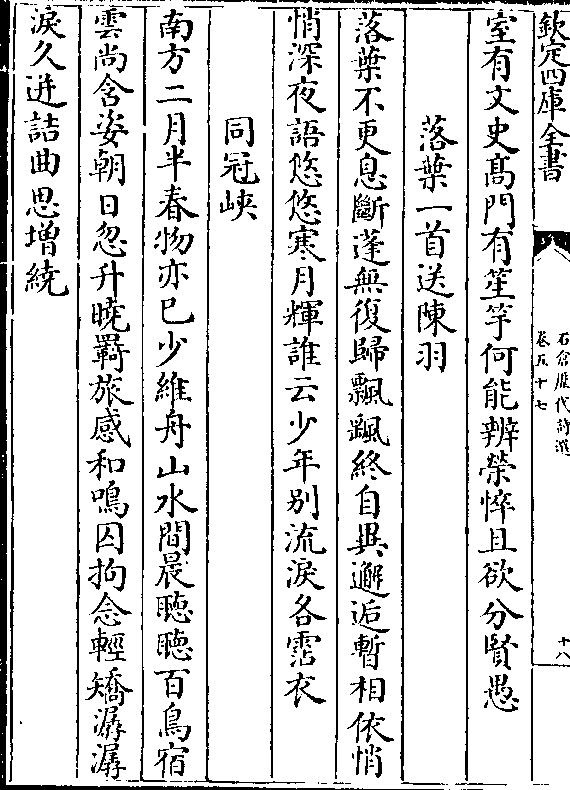 欽定四庫全書
石倉歴代詩選
卷五十七
十八
室有文史髙門有笙竽何能辨榮悴且欲分賢愚
落葉一首送陳羽
落葉不更息斷蓬無復歸飄颻終自異邂逅暫相依悄
悄深夜語悠悠寒月輝誰云少年别流淚各霑衣
同冠峡
南方二月半春物亦已少維舟山水間晨聴聴百鳥宿
雲尚含姿朝日忽升曉羇旅感和鳴囚拘念輕矯潺潺
淚久迸詰曲思增繞